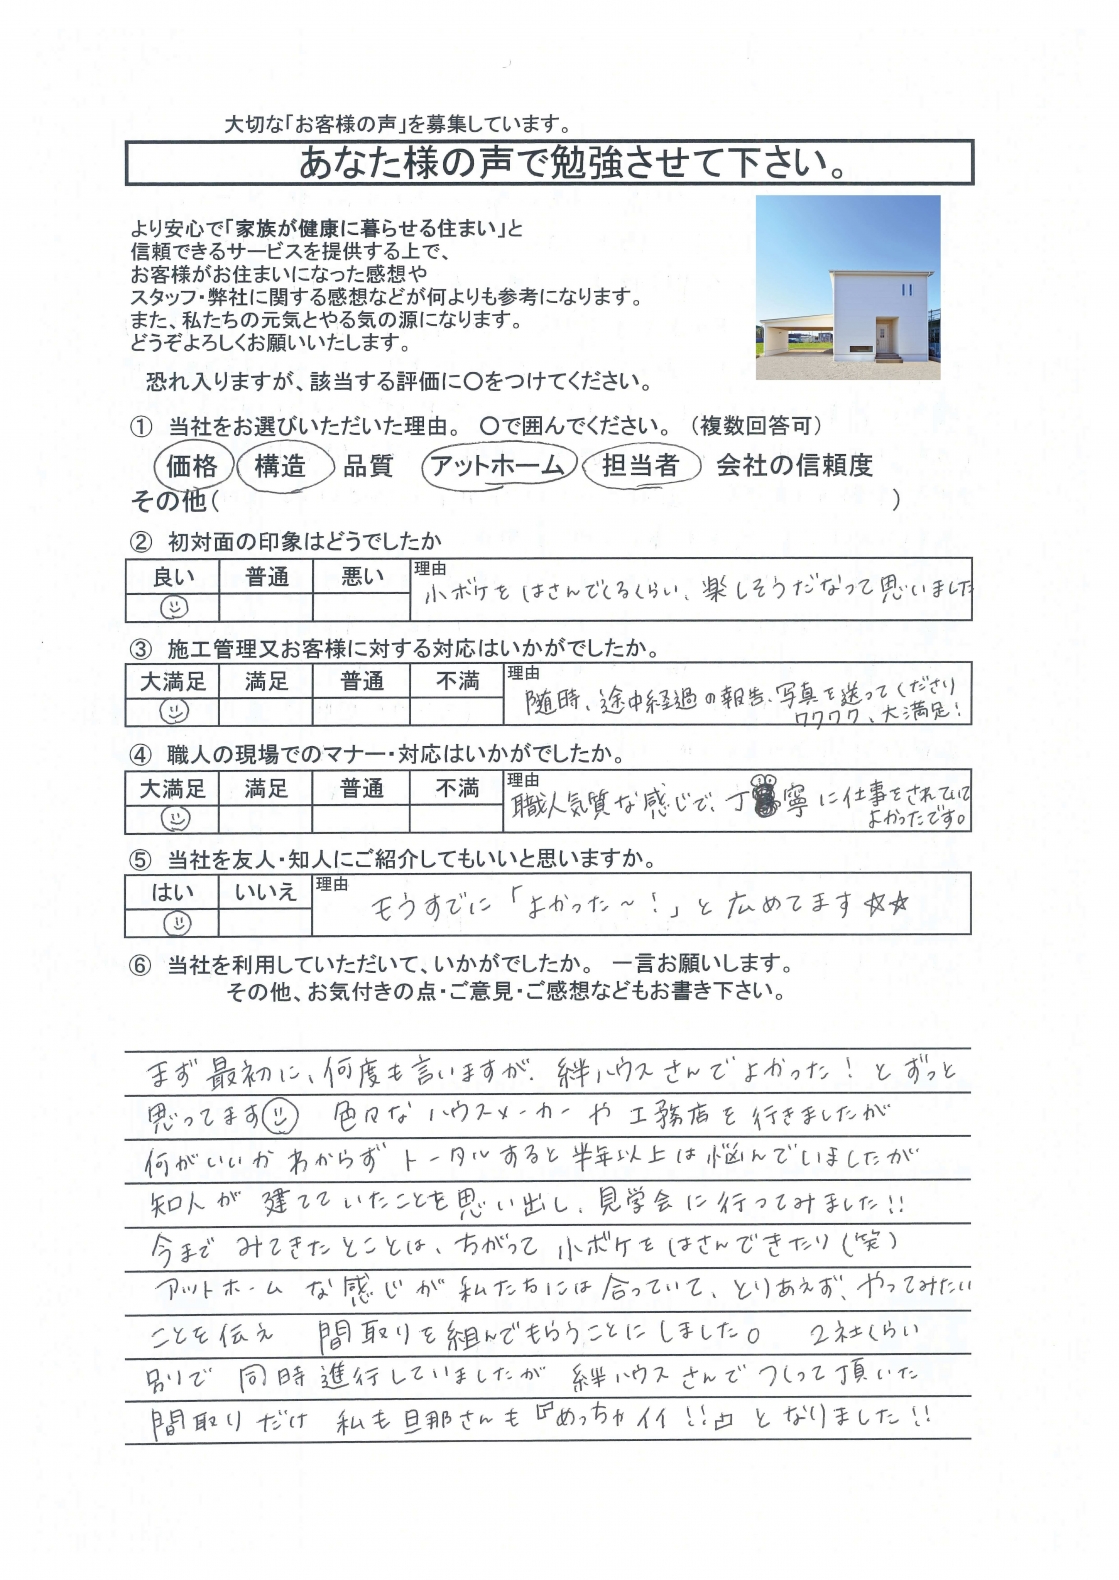 大切な「お客様の声」を募集しています。
あなた様の声で勉強させて下さい。
より安心で「家族が健康に暮らせる住まい」と
信頼できるサービスを提供する上で、
お客様がお住まいになった感想や
スタッフ・弊社に関する感想などが何よりも参考になります。
また、私たちの元気とやる気の源になります。
どうぞよろしくお願いいたします。
恐れ入りますが、該当する評価に〇をつけてください。
① 当社をお選びいただいた理由。 〇で囲んでください。（複数回答可）
価格 構造 品質 アットホーム 担当者 会社の信頼度
その他（ ）
② 初対面の印象はどうでしたか
良い 普通 悪い 理由
小ボケをはさんでくるくらい、楽しそうだなって思いました
③ 施工管理又お客様に対する対応はいかがでしたか。
大満足 満足 普通 不満 理由
随時、途中経過の報告、写真を送ってくださり
ワクワク、大満足！
④ 職人の現場でのマナー・対応はいかがでしたか。
大満足 満足 普通 不満 理由
職人気質な感じで、丁寧に仕事をされていて
よかったです。
⑤ 当社を友人・知人にご紹介してもいいと思いますか。
はい いいえ 理由
もうすでに「よかった～！」と広めてます☆☆
⑥ 当社を利用していただいて、いかがでしたか。 一言お願いします。
その他、お気付きの点・ご意見・ご感想などもお書き下さい。
まず最初に、何度も言いますが、絆ハウスさんでよかった！とずっと
思ってます 色々なハウスメーカーや工務店を行きましたが
何がいいかわからずトータルすると半年以上は悩んでいましたが
知人が建てていたことを思い出し、見学会に行ってみました!!
今までみてきたとことは、ちがって小ボケをはさんできたり（笑）
アットホームな感じが私たちには合っていて、とりあえず、やってみたい
ことを伝え 間取りを組んでもらうことにしました。 2社くらい
別で同時進行していましたが絆ハウスさんでつくって頂いた
間取りだけ私も旦那さんも『めっちゃイイ!!』となりました!!